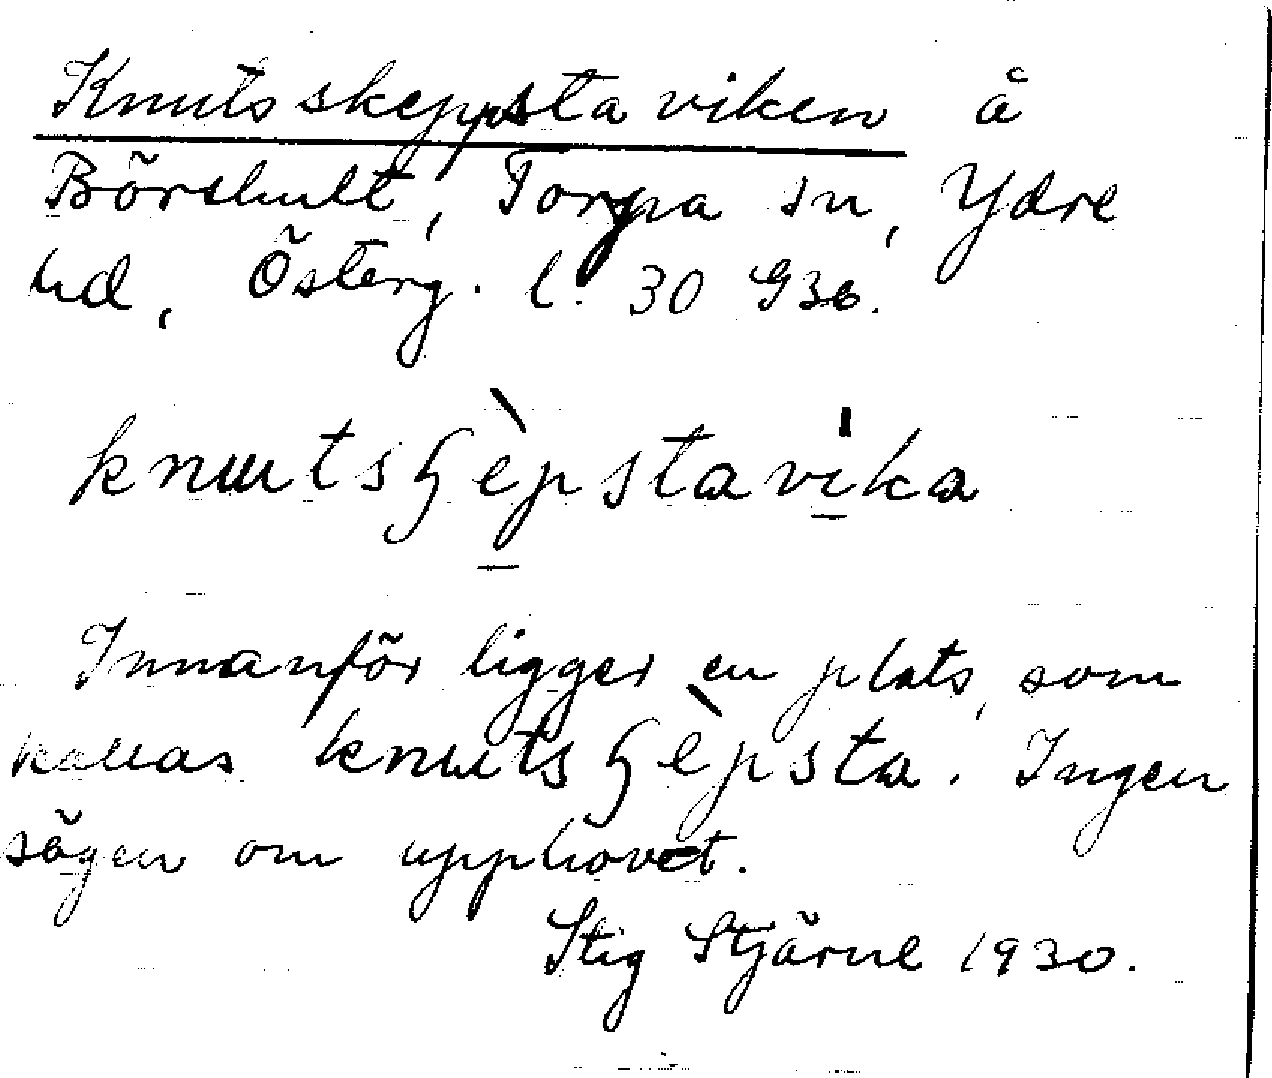 Knutsskeppstaviken å
Börshult, Torpa sn, Ydre
hd, Österg. l. 30 G36.
knɯtsʂèpstavika
Innanför ligger en plats, som
kallas knɯtsʂèpsta. Ingen
sägen om upphovet.
Stig Stjärne 1930.